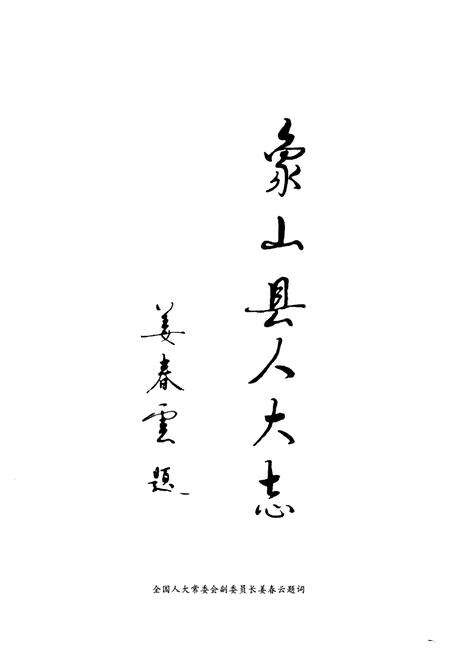 象山县人大志
姜春雲题
全国人大常委会副委员长姜春云题词